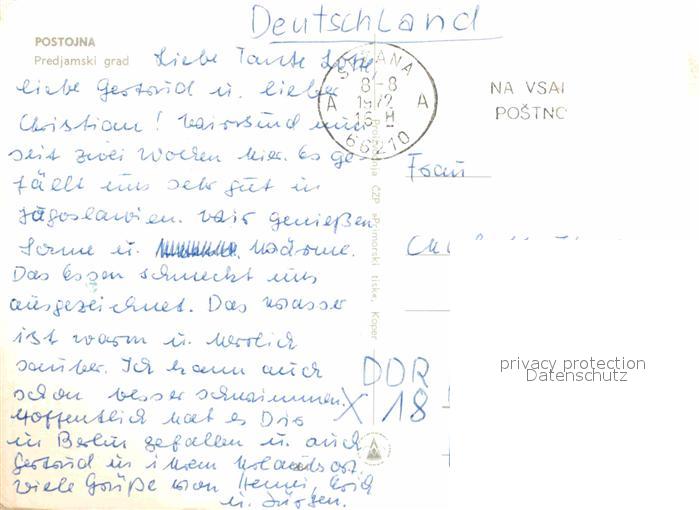 Deutschland
POSTOJNA
Predjamski grad
Liebe Tante Lotte,
liebe Gertrud u. lieber
Christian! Wir sind nun
seit zwei Wochen hier. Es ge-
fällt uns sehr gut in
Jugoslawien. Wir genießen
Sonne u. Wärme.
Das Essen schmeckt uns
ausgezeichnet. Das Wasser
ist warm u. herrlich
sauber. Ich kann auch
schon besser schwimmen.
Hoffentlich hat es Dir
in Berlin gefallen u. auch
Gertrud in ihrem Urlaubsort.
Viele Grüße von Henni, Erich
u. Jürgen.
8-8
1972
A A
16 H
66210
ČZP »Primorski tisk«, Koper
NA VSAI
POŠTNC
Frau
DDR
X 18
privacy protection
Datenschutz